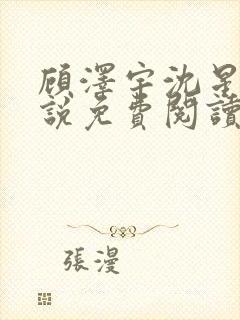 顧澤宇沈星
說免費閱讀
張漫